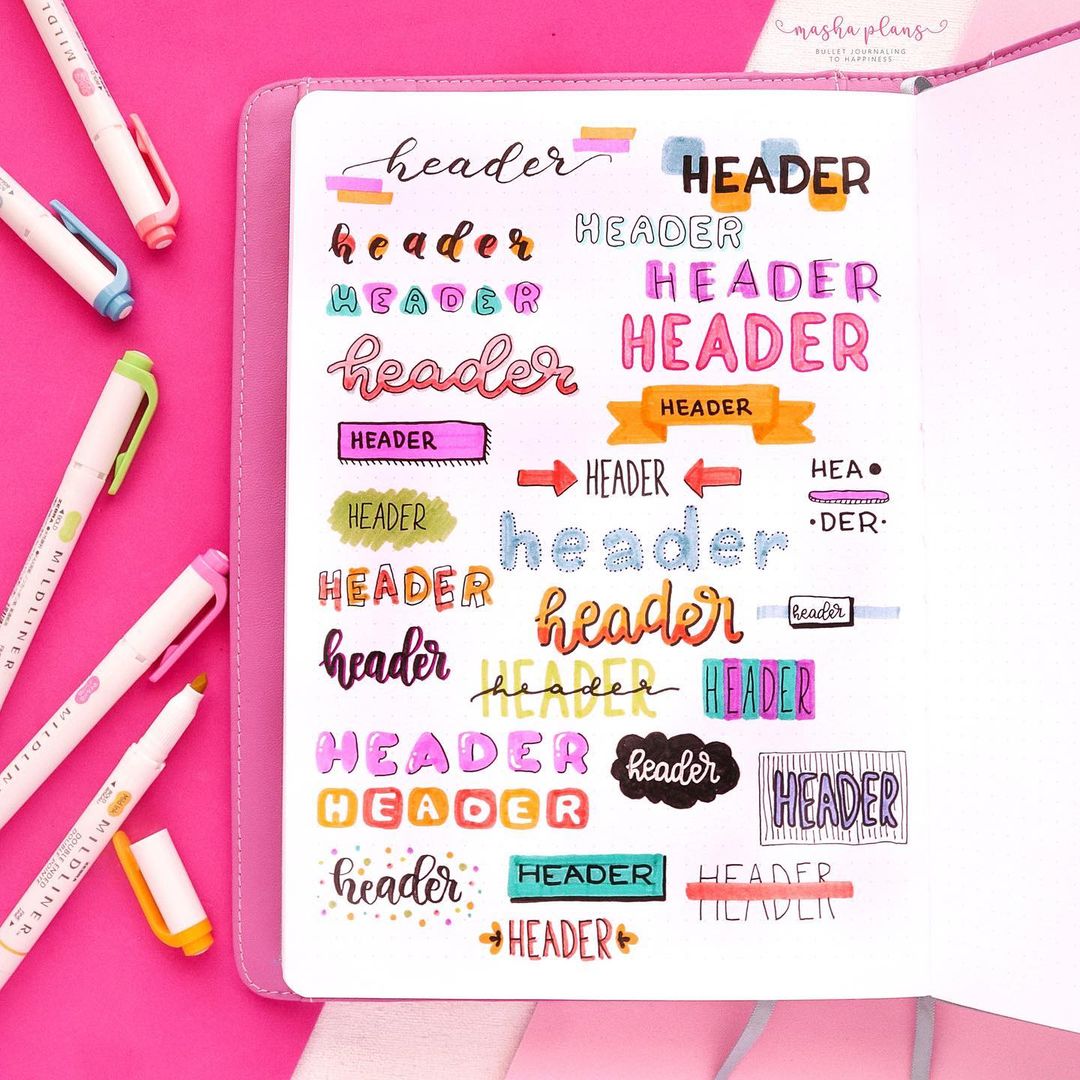 masha plans
BULLET JOURNALING
TO HAPPINESS
header
HEADER
header
HEADER
HEADER
HEADER
header
HEADER
HEADER
HEADER
HEADER
HEA
DER
HEADER
header
HEADER
header
header
header
HEADER
header
HEADER
HEADER
header
HEADER
HEADER
header
HEADER
HEADER
HEADER
MILDLINER
MILDLINER
MILDLIN
MILDLINER
DOUBLE ENDED